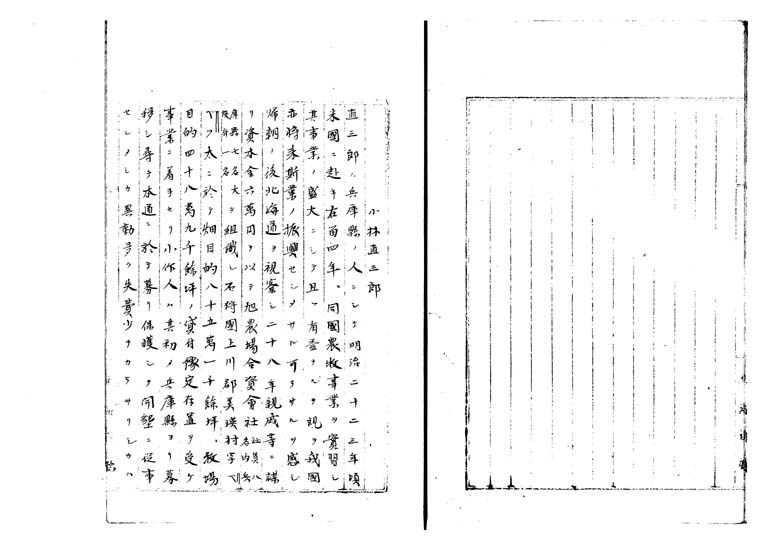 小林直三郎
直三郎ハ兵庫縣ノ人ニシテ明治二十三年頃
米國ニ赴キ在留四年、同國農牧事業ヲ實習シ
其事業ノ盛大ニシテ且ツ有益ナルヲ視テ我國
亦將來斯業ノ振興セシメサル可ラサルヲ感シ
帰朝ノ後北海道ヲ視察シ二十八年親戚等ニ謀
リ資本金六萬円ヲ以テ旭農場合資會社社員八名内兵
庫縣七名大阪府一名ヲ組織シ石狩國上川郡美瑛村字
ベツ太ニ於テ畑目的八十五萬一千餘坪、牧場
目的四十八萬九千餘坪ノ貸付豫定存置ヲ受ケ
事業ニ着手セリ小作人ハ其初メ兵庫縣ヨリ募
移シ尋テ本道ニ於テ募リ保護シテ開墾ニ従事
セシメシカ異動多ク失費少ナカラサリシカハ